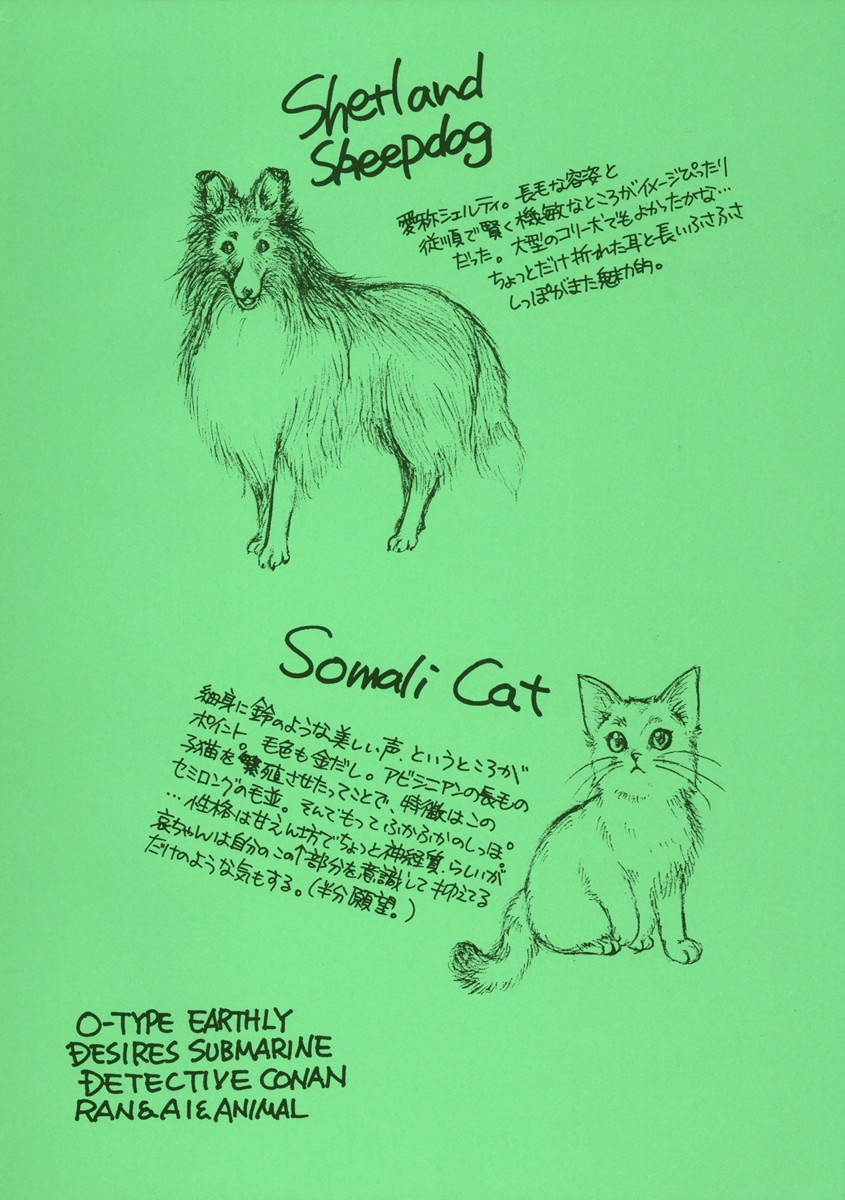 Shetland
Sheepdog
愛称シェルティ。長毛な容姿と
従順で賢く機敏なところがイメージぴったり
だった。大型のコリー犬でもよかったかな…
ちょっとだけ折れた耳と長いふさふさ
しっぽがまた魅力的。
Somali Cat
細身に鈴のような美しい声、というところが
ポイント。毛色も金だし。アビシニアンの長毛の
子猫を繁殖させたってことで、特徴はこの
セミロングの毛並。そんでもってふかふかのしっぽ。
…性格は甘えん坊でちょっと神経質、らしいが
哀ちゃんは自分のこの↑部分を意識して抑えてる
だけのような気もする。(半分願望。)
O-TYPE EARTHLY
DESIRES SUBMARINE
DETECTIVE CONAN
RAN&AI&ANIMAL